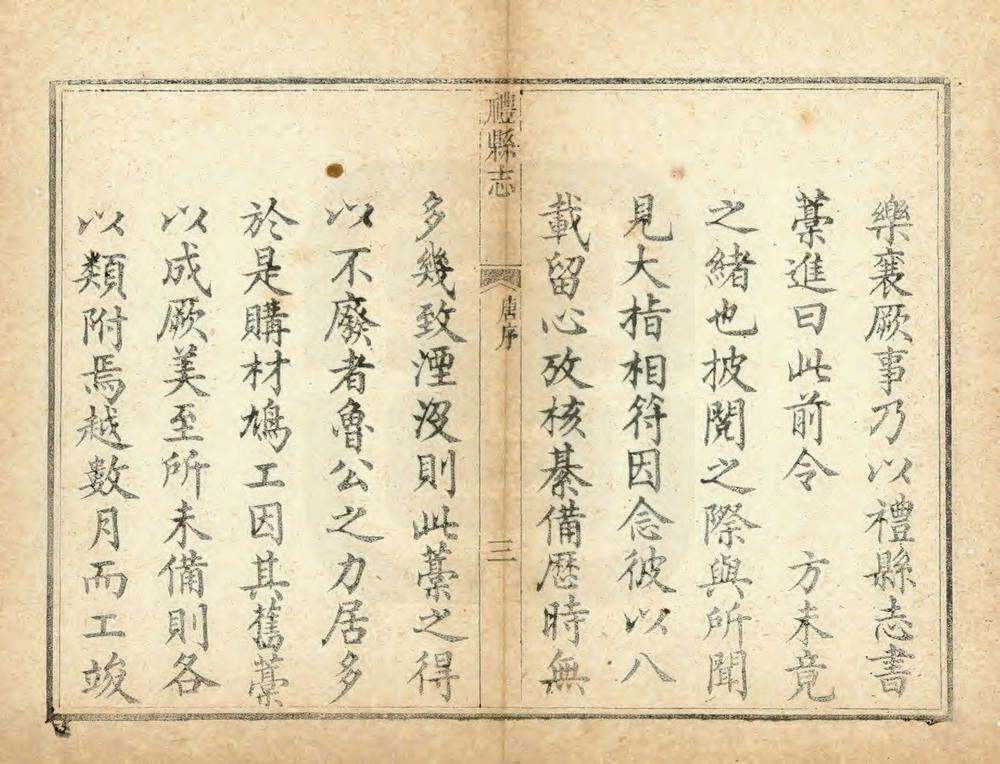 樂襄厥事乃以禮縣志書
藁進曰此前令　方未竟
之緒也披閱之際與所聞
見大指相符因念彼以八
載留心攷核綦備歷時無
禮縣志
唐序
三
多幾致湮沒則此藁之得
以不廢者魯公之力居多
於是購材鳩工因其舊藁
以成厥美至所未備則各
以類附焉越數月而工竣